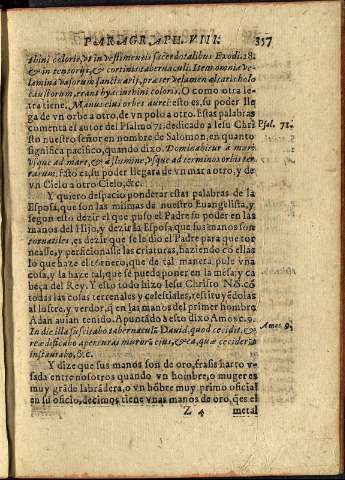 PARAGRAPH. VIII. 357
thini coloris, vt in vestimentis sacerdotalibus Exodi. 28.
& in tensorijs, & cortinis tabernaculi. Item omnia ve-
lamina vasorum sanctuarij, præter velamen altaris holo
caustorum, erant hyacinthini coloris. O como otra le-
tra tiene. Manus eius orbes aurei: esto es, su poder lle
ga de vn orbe a otro, de vn polo a otro. Estas palabras
comenta el autor del Psalmo 71. dedicado a Iesu Chri Psal. 71.
sto nuestro señor en nombre de Salomon, en quanto
significa pacifico, quando dixo. Dominabitur a mari
vsque ad mare, & a flumine, vsque ad terminos orbis ter
rarum. Esto es, su poder llegara de vn mar a otro, y de
vn Cielo a otro Cielo, &c.
Y quiero despacio ponderar estas palabras de la
Esposa, que son las mismas de nuestro Euangelista, y
segun esto dezir el que puso el Padre su poder en las
manos del Hijo, y dezir la Esposa que sus manos son
tornatiles, es dezir que se le dio el Padre para que tor
neasse, y perficionasse las criaturas, haziendo cõ ellas
lo que haze el tornero, que de tal manera pule vna
cosa, y la haze tal, que se puede poner en la mesa, y ca
beça del Rey. Y esto todo hizo Iesu Christo N.S. cõ
todas las cosas terrenales y celestiales, restituyẽdolas
al lustre, y verdor, q̃ en las manos del primer hombre
Adan auian tenido. Apuntado a esto dixo Amos c. 9.
In die illa suscitabo tabernaculũ Dauid, quod cecidit, & Amos 9.
reædificabo aperturas murorũ eius, & ea, quæ ceciderãt
instaurabo, &c.
Y dize que sus manos son de oro, frasis harto v-
sada entre nosotros quando vn hombre, o muger es
muy grãde labrãdera, o vn hõbre muy primo oficial
en su oficio, decimos tiene vnas manos de oro, q̃ es el
Z 4 metal